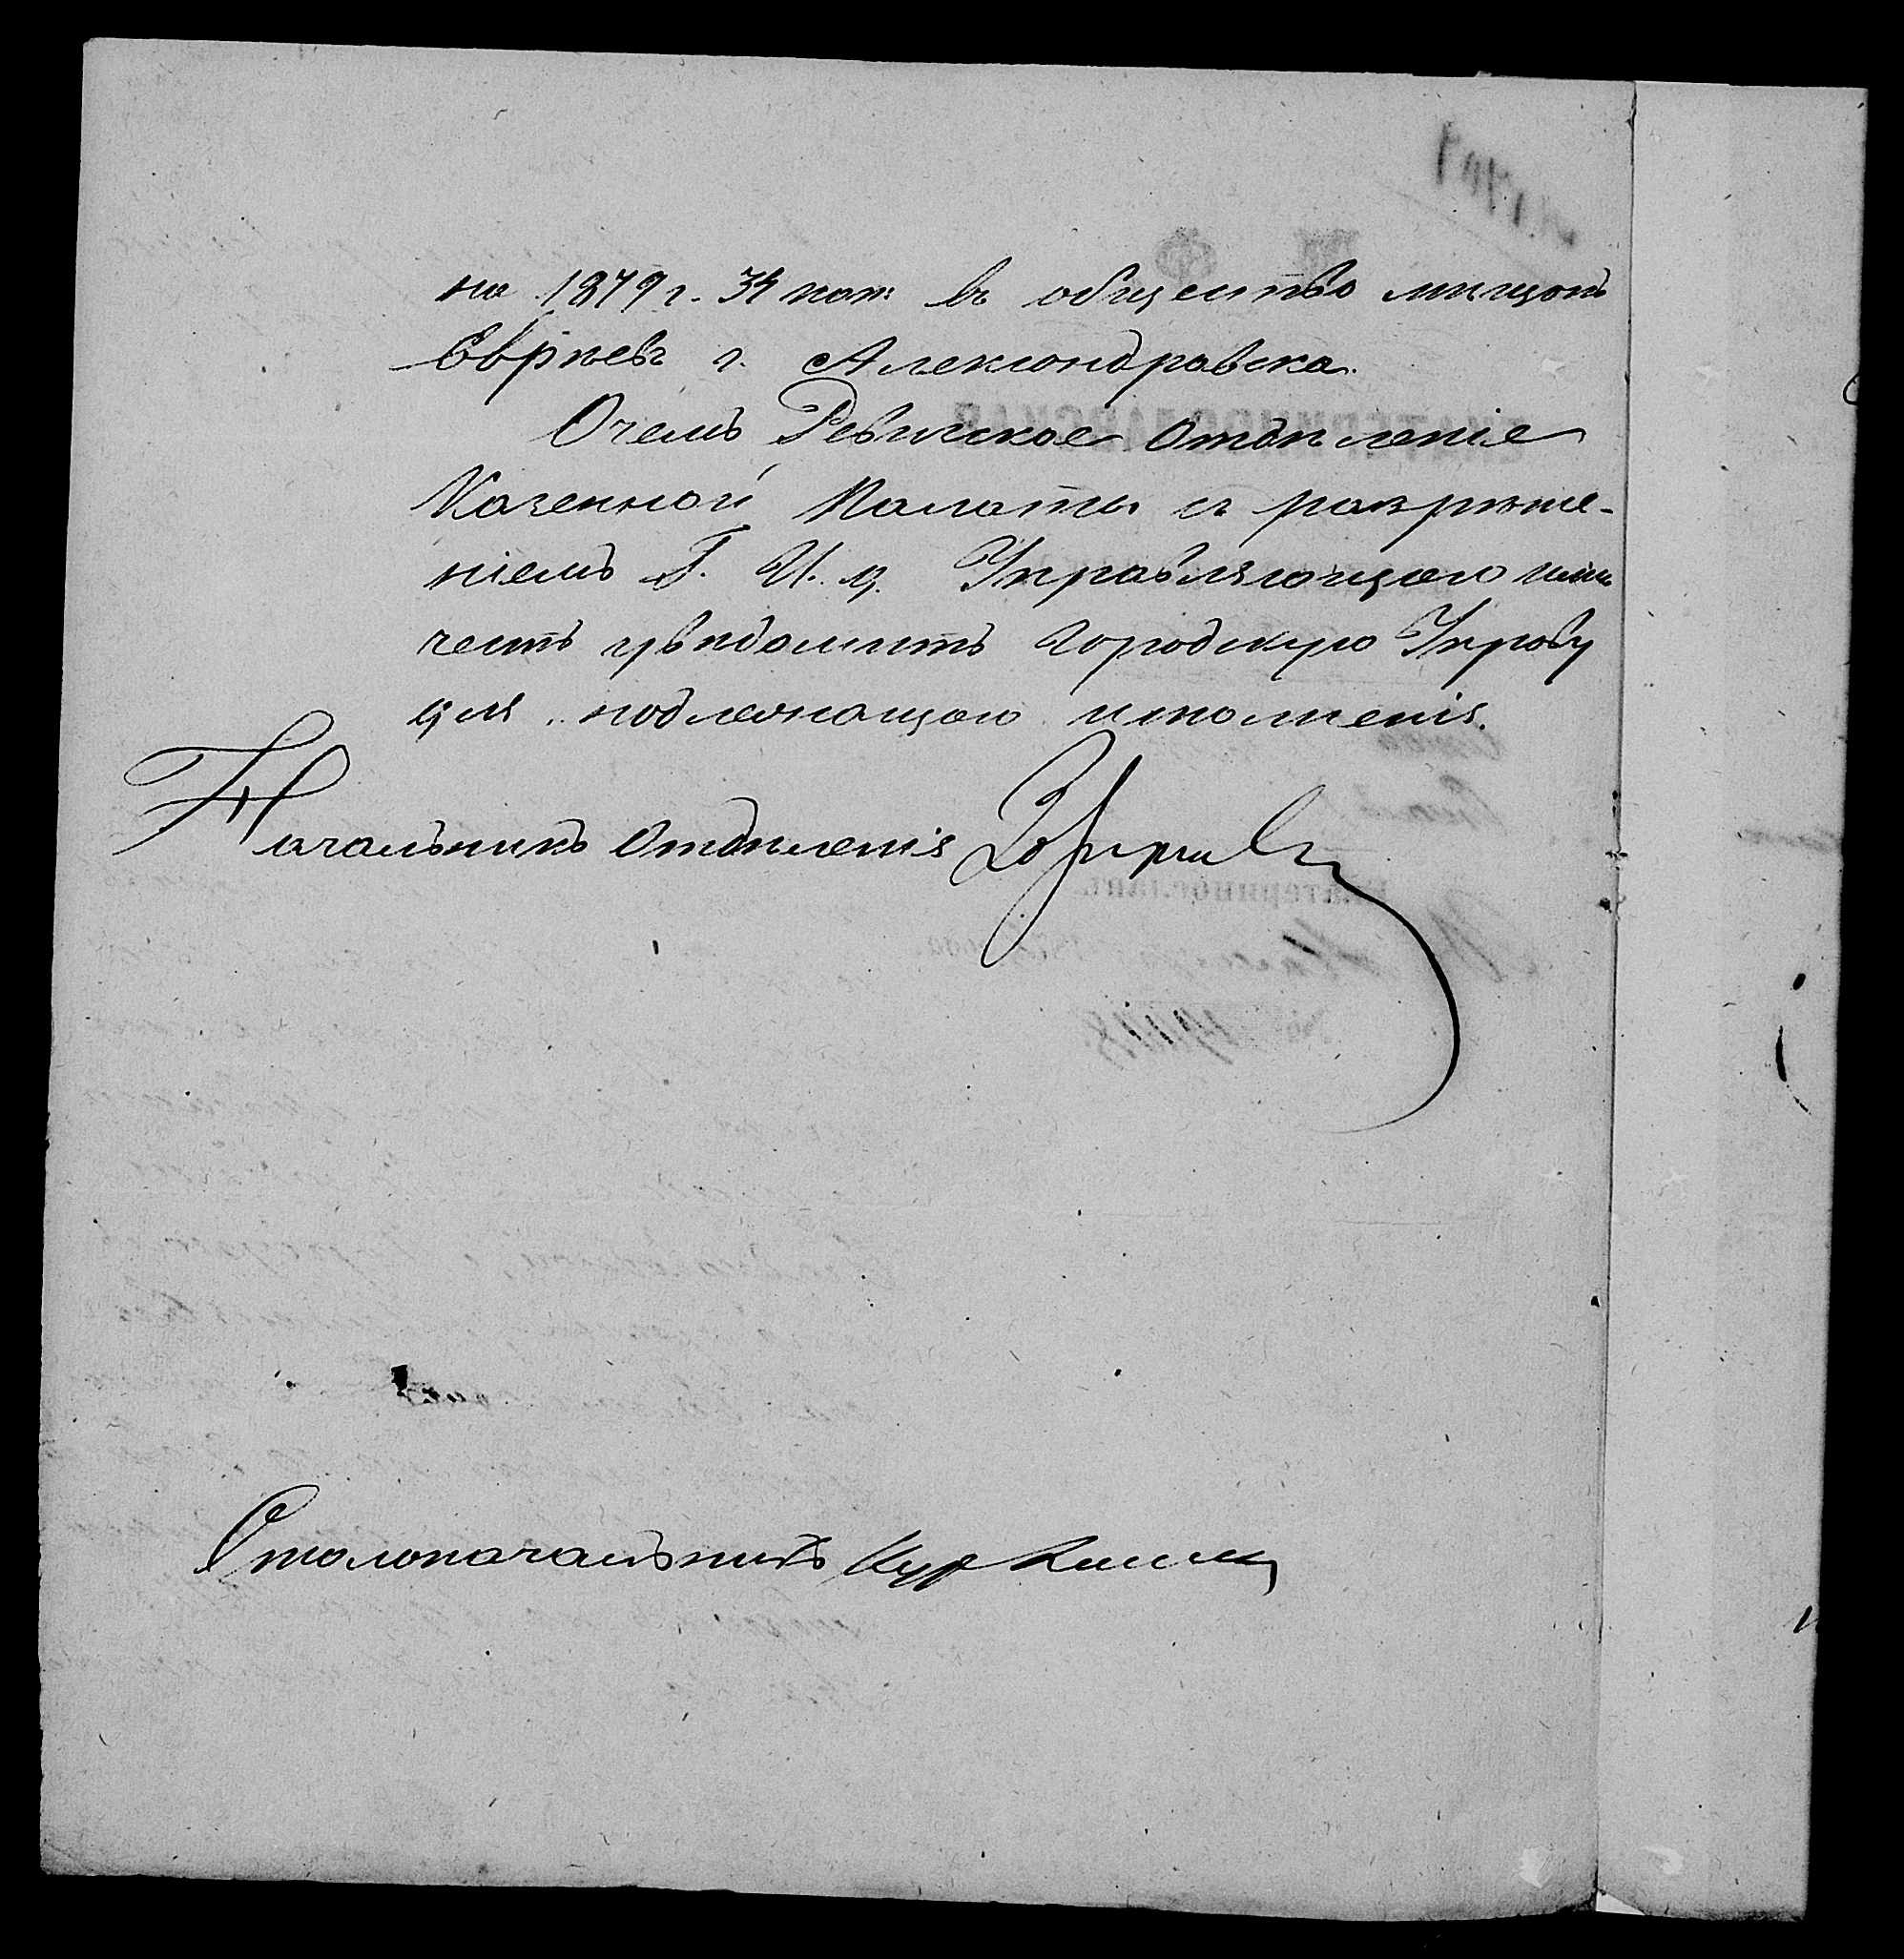 на 1879 г. 34 коп: въ общество мѣщанъ
Евреевъ г. Александровска.
О чемъ Ревизское Отдѣленіе
Казенной Палаты съ разрѣше-
ніемъ Г. И. д. Управляющаго имѣ
честь увѣдомить Городскую Управу
для надлежащаго исполненія.
Начальникъ Отдѣленія
Столоначальникъ